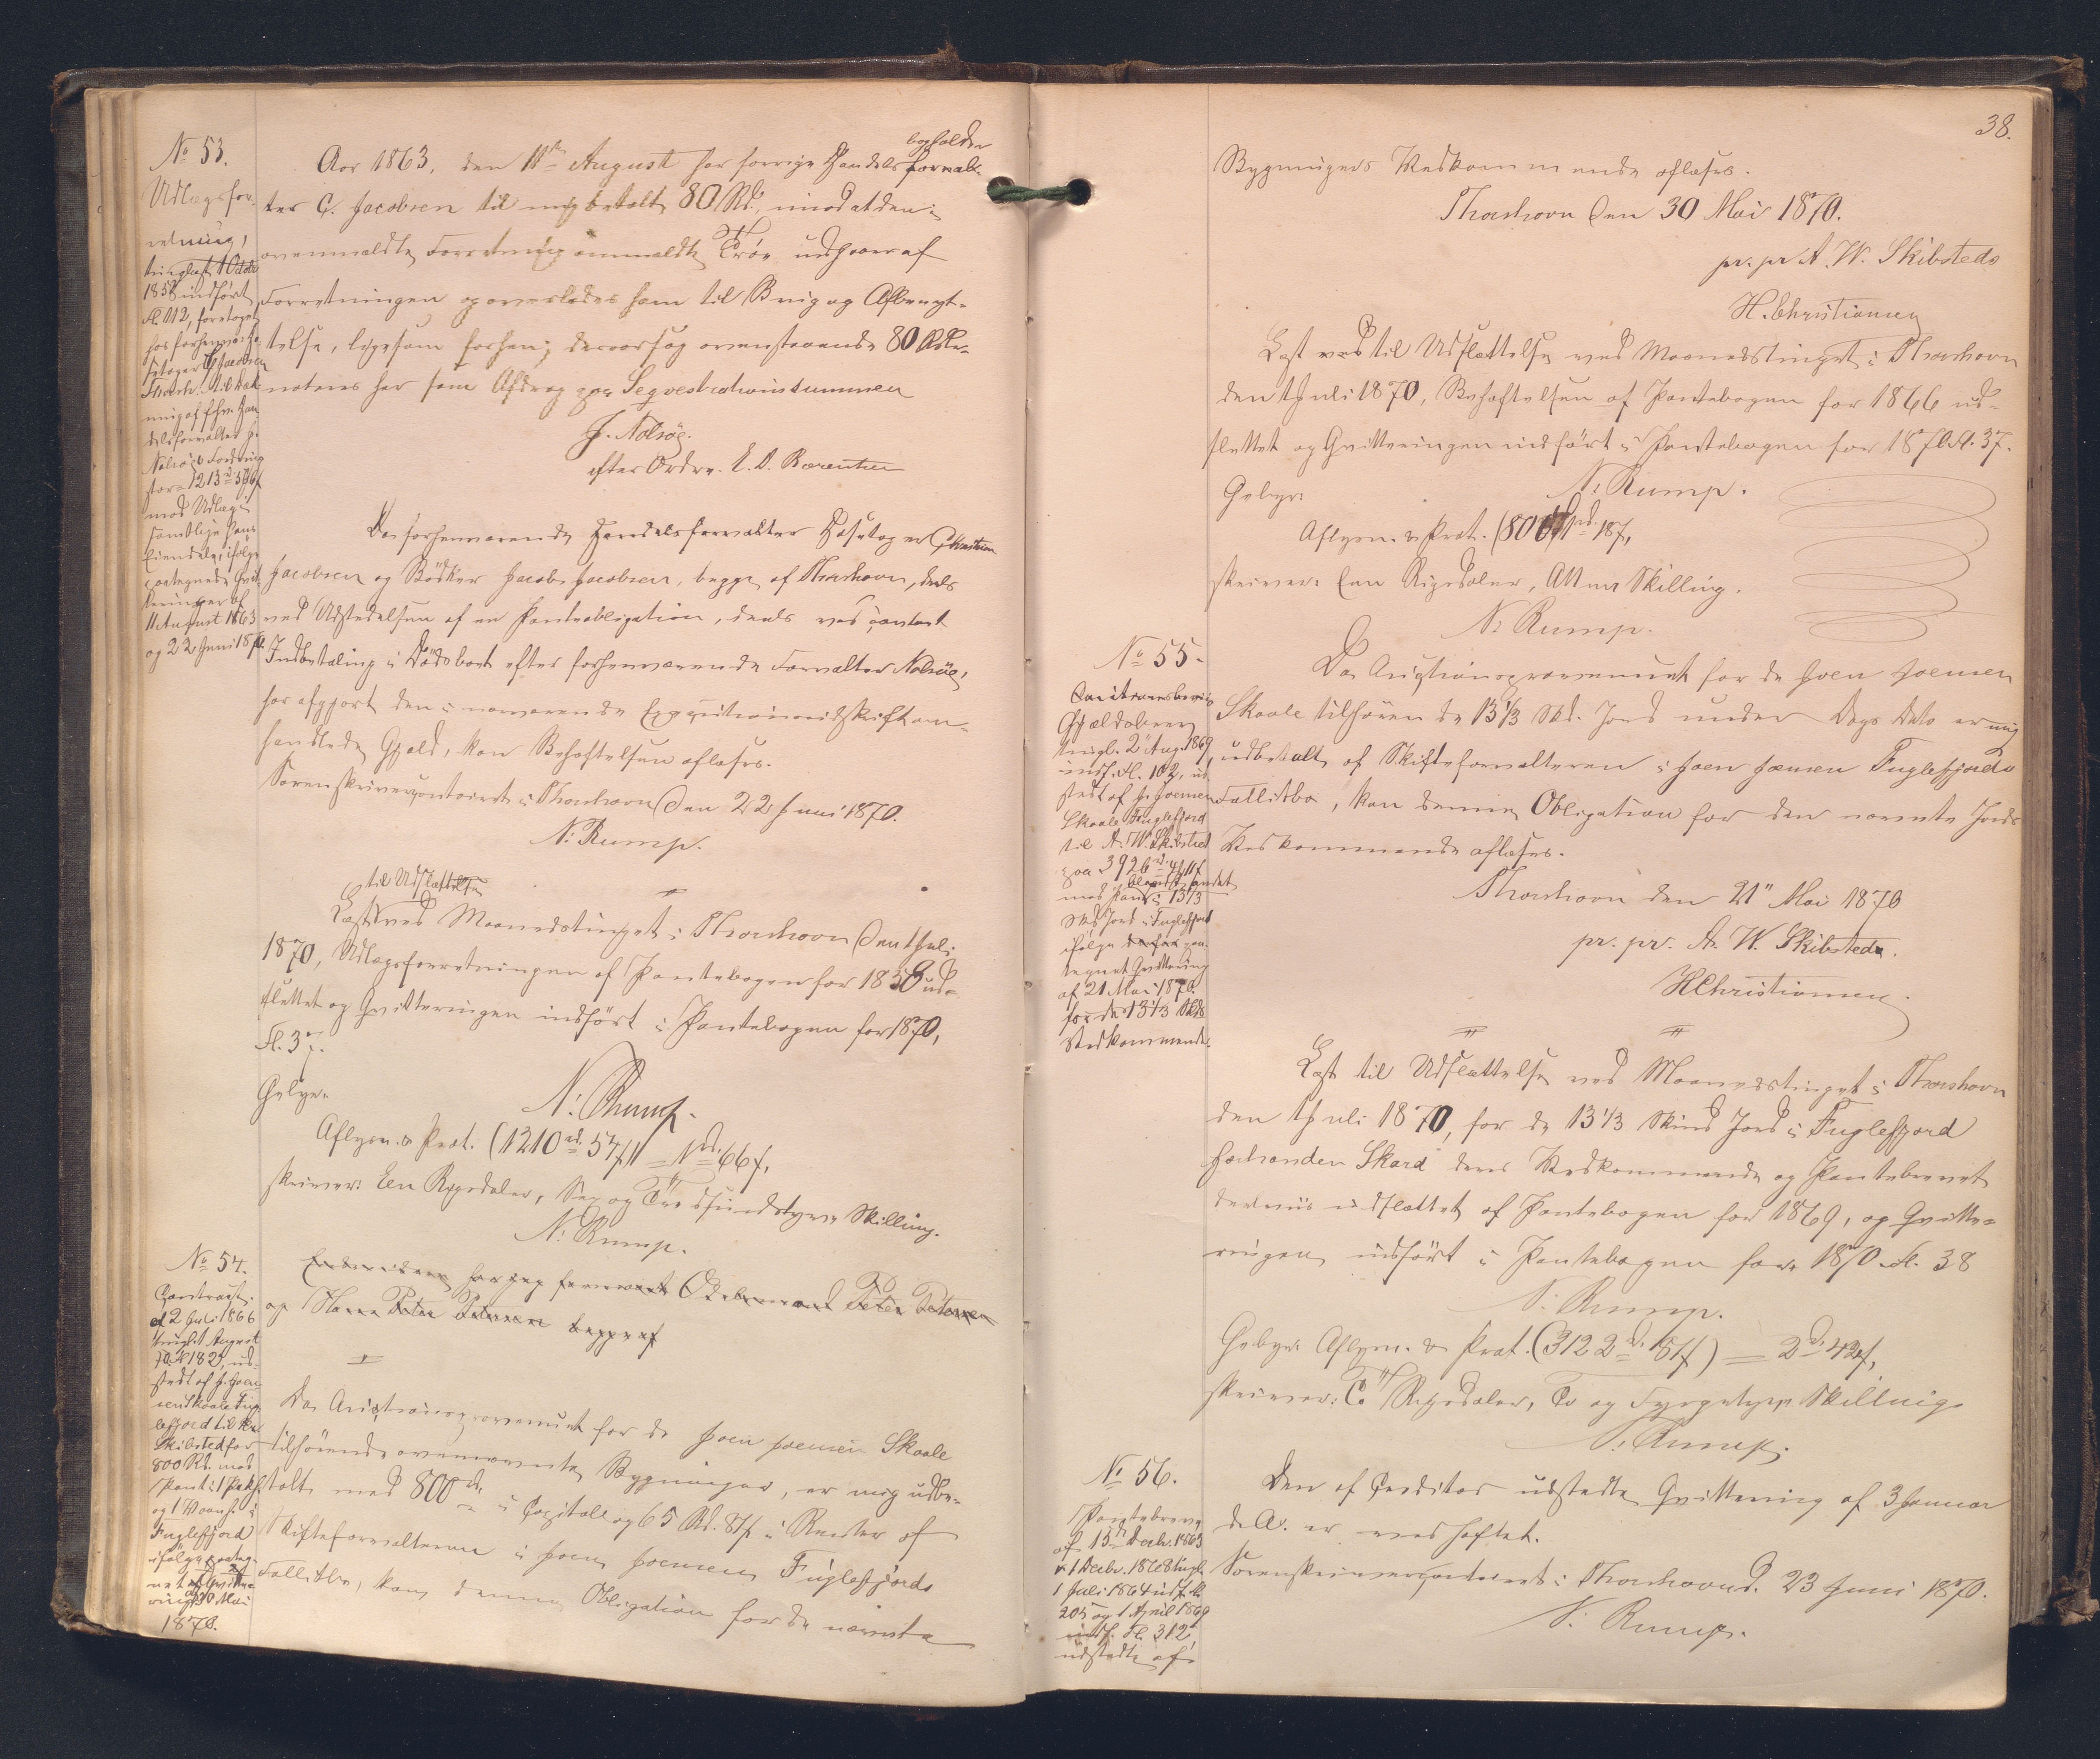 No 53.
Udlægsfor-
retning,
tinglæst 1 Octbr
1858 indført
Fl. 112, foretaget
hos forhenværende
Høsetager C. Jacobsen
Thorsh.
delsforvalter J.
Nolsøes Fordring
stor 1213 rd 57 ß
mod Udlæg i
samtlige hans
Eiendele, ifølge
paategnede Qvit-
teringer af
11 August 1863
og 22 Juni 1870.
bogholder
Aar 1863, den 11te August har forrige Handels forval-
ter C. Jacobsen til mig betalt 80 Rd., imod at den i
ovenmeldte Forretning ommeldte Tröe udgaaer af
Forretningen og overlades ham til Brug og Afbenyt-
telse, ligesom forhen; desaarsag ovenstaaende 80 Rdlr.
noteres her som Afdrag paa Seqvestrationssummen
J. Nolsöe.
efter Ordre. E. D. Bærentsen
Da forhenværende Handelsforvalter Høsetager Christian
Jacobsen og Bödker Jacob Jacobsen, begge af Thorshavn, deels
ved Udstedelsen af en Panteobligation, deels ved contant
Indbetaling i Dödsboet efter forhenværende Forvalter Nolsöe,
har afgjort den i nærværende Exqvisitionsudskrift om-
handlede Gjæld, kan Behæftelsen aflæses.
Sorenskrivercontoiret i Thorshavn den 22 Juni 1870.
N. Rump.
til Udslettelse
Læst ved Maanedstinget i Thorshavn den 1 Juli
1870, Udlægsforretningen af Pantebogen for 1858 ud-
slettet og Qvitteringen indført i Pantebogen for 1870,
Fl. 37.
N. Rump.
Gebyr.
Aflysn. & Prot. (1210 rd 57 ß) = 1 rd 66 ß,
skriver: Een Rigsdaler, Sex og Tredsindstyve Skilling.
N. Rump.
No 54.
Contract
af 2 Juli 1866
tingl. 1 August
s. A. Fl 182, ud-
stedt af J. Joen-
sen Skaale Fug-
lefjord til A. W.
Skibsted for
800 Rd. mod
Pant i 1 Pakh.
og 1 Vaaneh. i
Fuglefjord
ifølge paateg-
net Qvitte-
ring af 30 Mai
1870.
Endvidere har jeg forevist Odelsmand Peter Petersen
og Hans Peter Petersen begge af
Da Auctionsprovenuet for de Joen Joensen Skaale
tilhørende ovennævnte Bygninger, er mig udbe-
talt med 800 rd i Capitale og 65 Rd. 81 ß i Renter af
Skifteforvalteren i Joen Joensen Fuglefjords
Fallitbo, kan denne Obligation for de nævnte
38.
Bygningers Vedkommende aflæses.
Thorshavn den 30 Mai 1870.
pr. pr A. W. Skibsteds
H. Christiansen
Læst ved til Udslettelse ved Maanedstinget i Thorshavn
den 1 Juli 1870, Behæftelsen af Pantebogen for 1866 ud-
slettet og Qvitteringen indført i Pantebogen for 1870 Fl. 37.
N. Rump.
Gebyr:
Aflysn. & Prot. (800 rd) 1 rd 18 ß,
skriver: Een Rigsdaler, Atten Skilling.
N. Rump.
No 55.
Cautionsbeviis
Gjældsbrev
tingl. 2 Aug. 1869
indf. Fl. 102, ud-
stedt af J. Joensen
Skaale Fuglefjord
til A. W. Skibsted
paa 3926 rd 41 ß
mod Pant i 13⅓
Skd Jord i Fuglefjord
ifølge derfor paa-
tegnet Qvittering
af 21 Mai 1870.
for de 13⅓ Skds
Vedkommende.
Da Auctionsprovenuet for de Joen Joensen
Skaale tilhørende 13⅓ Skd. Jord under Dags Dato er mig
udbetalt af Skifteforvalteren i Joen Joensen Fuglefjords
Fallitbo, kan denne Obligation for den nævnte Jords
Vedkommende aflæses.
Thorshavn den 21 Mai 1870
pr. pr. A. W. Skibsteds.
H Christiansen.
Læst til Udslettelse ved Maanedstinget i Thorshavn
den 1 Juli 1870, for de 13⅓ Skind Jord i Fuglefjord
Skard deres Vedkommende og Pantebrevet
derved udslettet af Pantebogen for 1869, og Qvitte-
ringen indført i Pantebogen for 1870 Fl. 38
N. Rump.
Gebyr: Aflysn. & Prot. (3122 rd 81 ß) = 2 rd 42 ß,
skriver: To Rigsdaler, To og Fyrgetyve Skilling
N. Rump.
No 56.
Pantebreve
af 15 Decbr. 1863
& 1 Decbr. 1868 tingl.
1 Juli 1864 indf. Fl.
205 og 1 April 1869
indf. Fl. 312
udstedte af
Den af Creditor udstedte Qvittering af 3 Januar
d. A. er vedhæftet.
Sorenskrivercontoiret i Thorshavn d. 23 Juni 1870.
N. Rump.